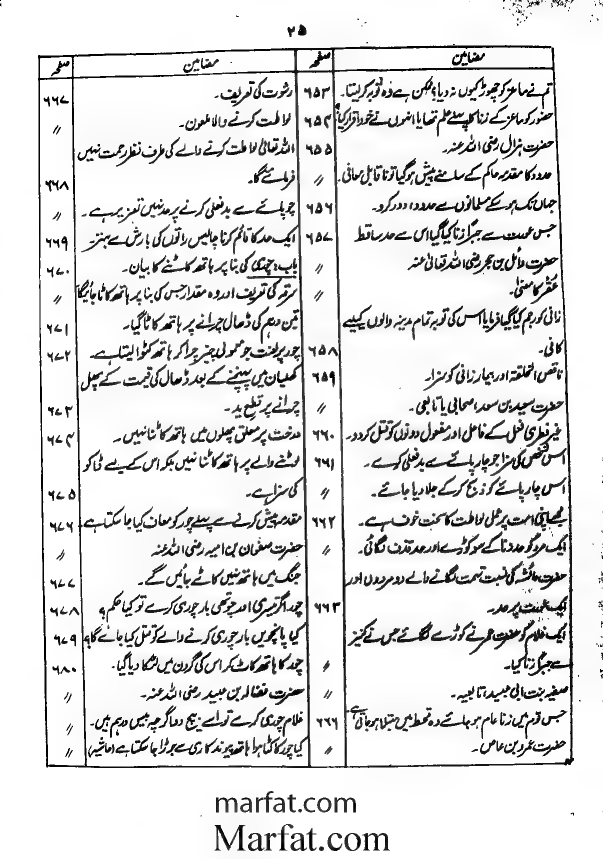 ۲۵
مضامین
صفحہ
تم نے ماعز کو چھوڑ کیوں نہ دیا؟ ممکن ہے وہ توبہ کر لیتا۔ ۶۵۳
حضور کو ماعز کے زنا کا پہلے علم تھا یا انہوں نے خود اقرار کیا؟ ۶۵۴
حضرت ہزال رضی اللہ عنہ۔ ۶۵۵
حدود کا مقدمہ حاکم کے سامنے پیش ہو گیا تو نا قابل معافی۔ ״
جہاں تک ہو سکے مسلمانوں سے حدود دور کرو۔ ۶۵۶
جس عورت سے جبراً زنا کیا گیا اس سے حد ساقط ۶۵۷
حضرت وائل بن حجر رضی اللہ تعالیٰ عنہ ״
عقر کا معنیٰ۔ ״
زانی کو رجم کیا گیا فرمایا اس کی توبہ تمام مدینہ والوں کیلئے
کافی۔ ۶۵۸
ناقص الخلقۃ اور بیمار زانی کو سزا۔ ۶۵۹
حضرت سعید بن سعد صحابی یا تابعی۔ ״
غیر فطری فعل کے فاعل اور مفعول دونوں کو قتل کر دو۔ ۶۶۰
اس شخص کی سزا جو چار پائے سے بد فعلی کرے۔ ۶۶۱
اس چار پائے کو ذبح کر کے جلا دیا جائے۔ ״
مجھے اپنی امت پر عمل لواطت کا سخت خوف ہے۔ ۶۶۲
ایک مرد کو حد زنا کے سو کوڑے اور حد قذف لگائی۔ ״
حضرت عائشہ کی نسبت تہمت لگانے والے دو مردوں اور
ایک عورت پر حد۔ ۶۶۳
ایک غلام کو حضرت عمر نے کوڑے لگائے جس نے کنیز
سے جبراً زنا کیا۔ ״
صفیہ بنت ابی عبید تابعیہ۔ ״
جس قوم میں زنا عام ہو جائے وہ قحط میں مبتلا ہو جاتی ہے ۶۶۶
حضرت عمرو بن عاص۔ ״
مضامین
صفحہ
رشوت کی تعریف۔ ۶۶۷
لواطت کرنے والا ملعون۔ ״
اللہ تعالیٰ لواطت کرنے والے کی طرف نظر رحمت نہیں
فرمائے گا۔ ۶۶۸
چوپائے سے بد فعلی کرنے پر حد نہیں تعزیر ہے۔ ״
ایک حد کا قائم کرنا چالیس راتوں کی بارش سے بہتر۔ ۶۶۹
باب: چوری کی بنا پر ہاتھ کاٹنے کا بیان۔ ۶۷۰
سرقہ کی تعریف اور وہ مقدار جس کی بنا پر ہاتھ کاٹا جائیگا ״
تین درہم کی ڈھال چرانے پر ہاتھ کاٹا گیا۔ ۶۷۱
چور پر لعنت جو معمولی چیز چرا کر ہاتھ کٹوا لیتا ہے۔ ۶۷۲
کھلیان میں پہنچنے کے بعد ڈھال کی قیمت کے پھل
چرانے پر قطع ید۔ ۶۷۳
درخت پر معلق پھلوں میں ہاتھ کاٹنا نہیں۔ ۶۷۴
لوٹنے والے پر ہاتھ کاٹنا نہیں بلکہ اس کے لیے ڈاکو
کی سزا ہے۔ ۶۷۵
مقدمہ پیش کرنے سے پہلے چور کو معاف کیا جا سکتا ہے ۶۷۶
حضرت صفوان بن امیہ رضی اللہ عنہ ״
جنگ میں ہاتھ نہیں کاٹے جائیں گے۔ ۶۷۷
چور اگر تیسری اور چوتھی بار چوری کرے تو کیا حکم؟ ۶۷۸
کیا پانچویں بار چوری کرنے والے کو قتل کیا جائے گا؟ ۶۷۹
چور کا ہاتھ کاٹ کر اس کی گردن میں لٹکا دیا گیا۔ ۶۸۰
حضرت فضالہ بن عبید رضی اللہ عنہ۔ ״
غلام چوری کرے تو اسے بیچ دو اگرچہ بیس درہم ہیں۔ ״
کیا چور کا کٹا ہوا ہاتھ پیوند کاری سے جوڑا جا سکتا ہے (حاشیہ) ״
marfat.com
Marfat.com